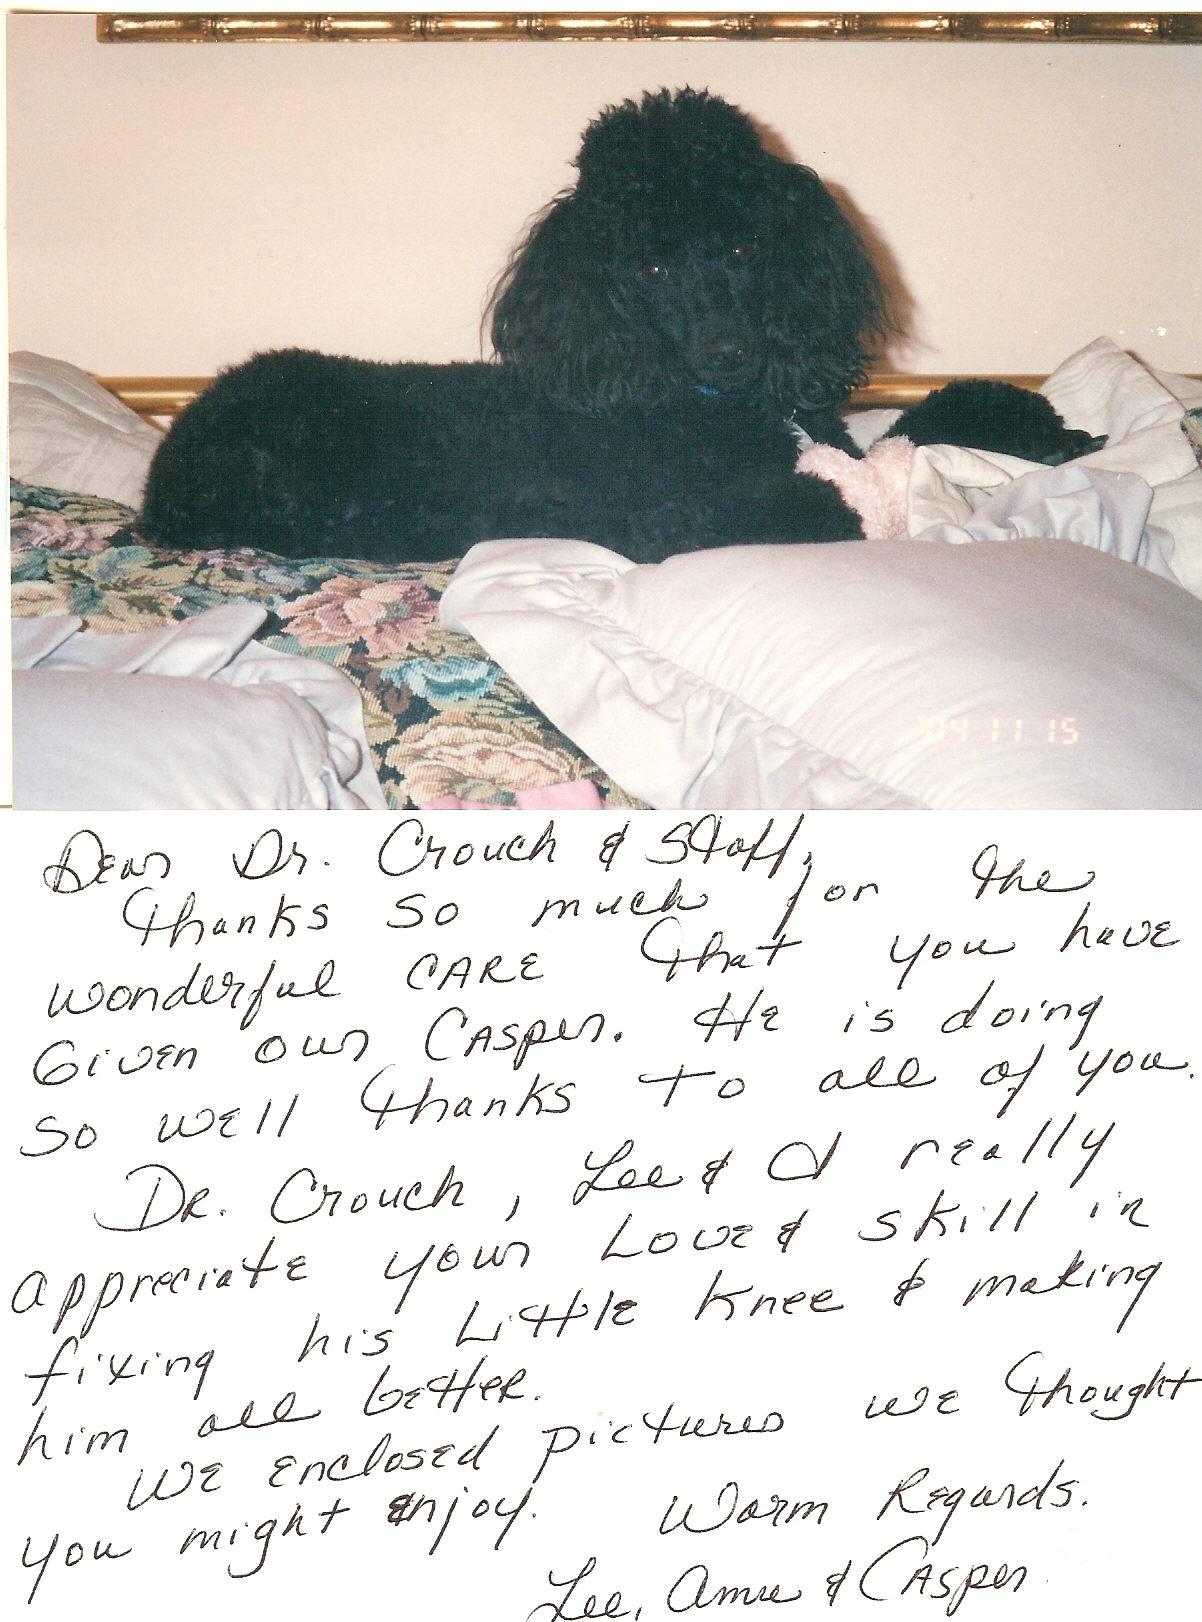 '04 11 15
Dear Dr. Crouch & Staff,
Thanks so much for the
wonderful CARE that you have
Given our Casper. He is doing
so well thanks to all of you.
Dr. Crouch, Lee & I really
appreciate your Love & skill in
fixing his Little Knee & making
him all better.
We enclosed pictures we thought
you might enjoy.
Warm Regards.
Lee, & Casper